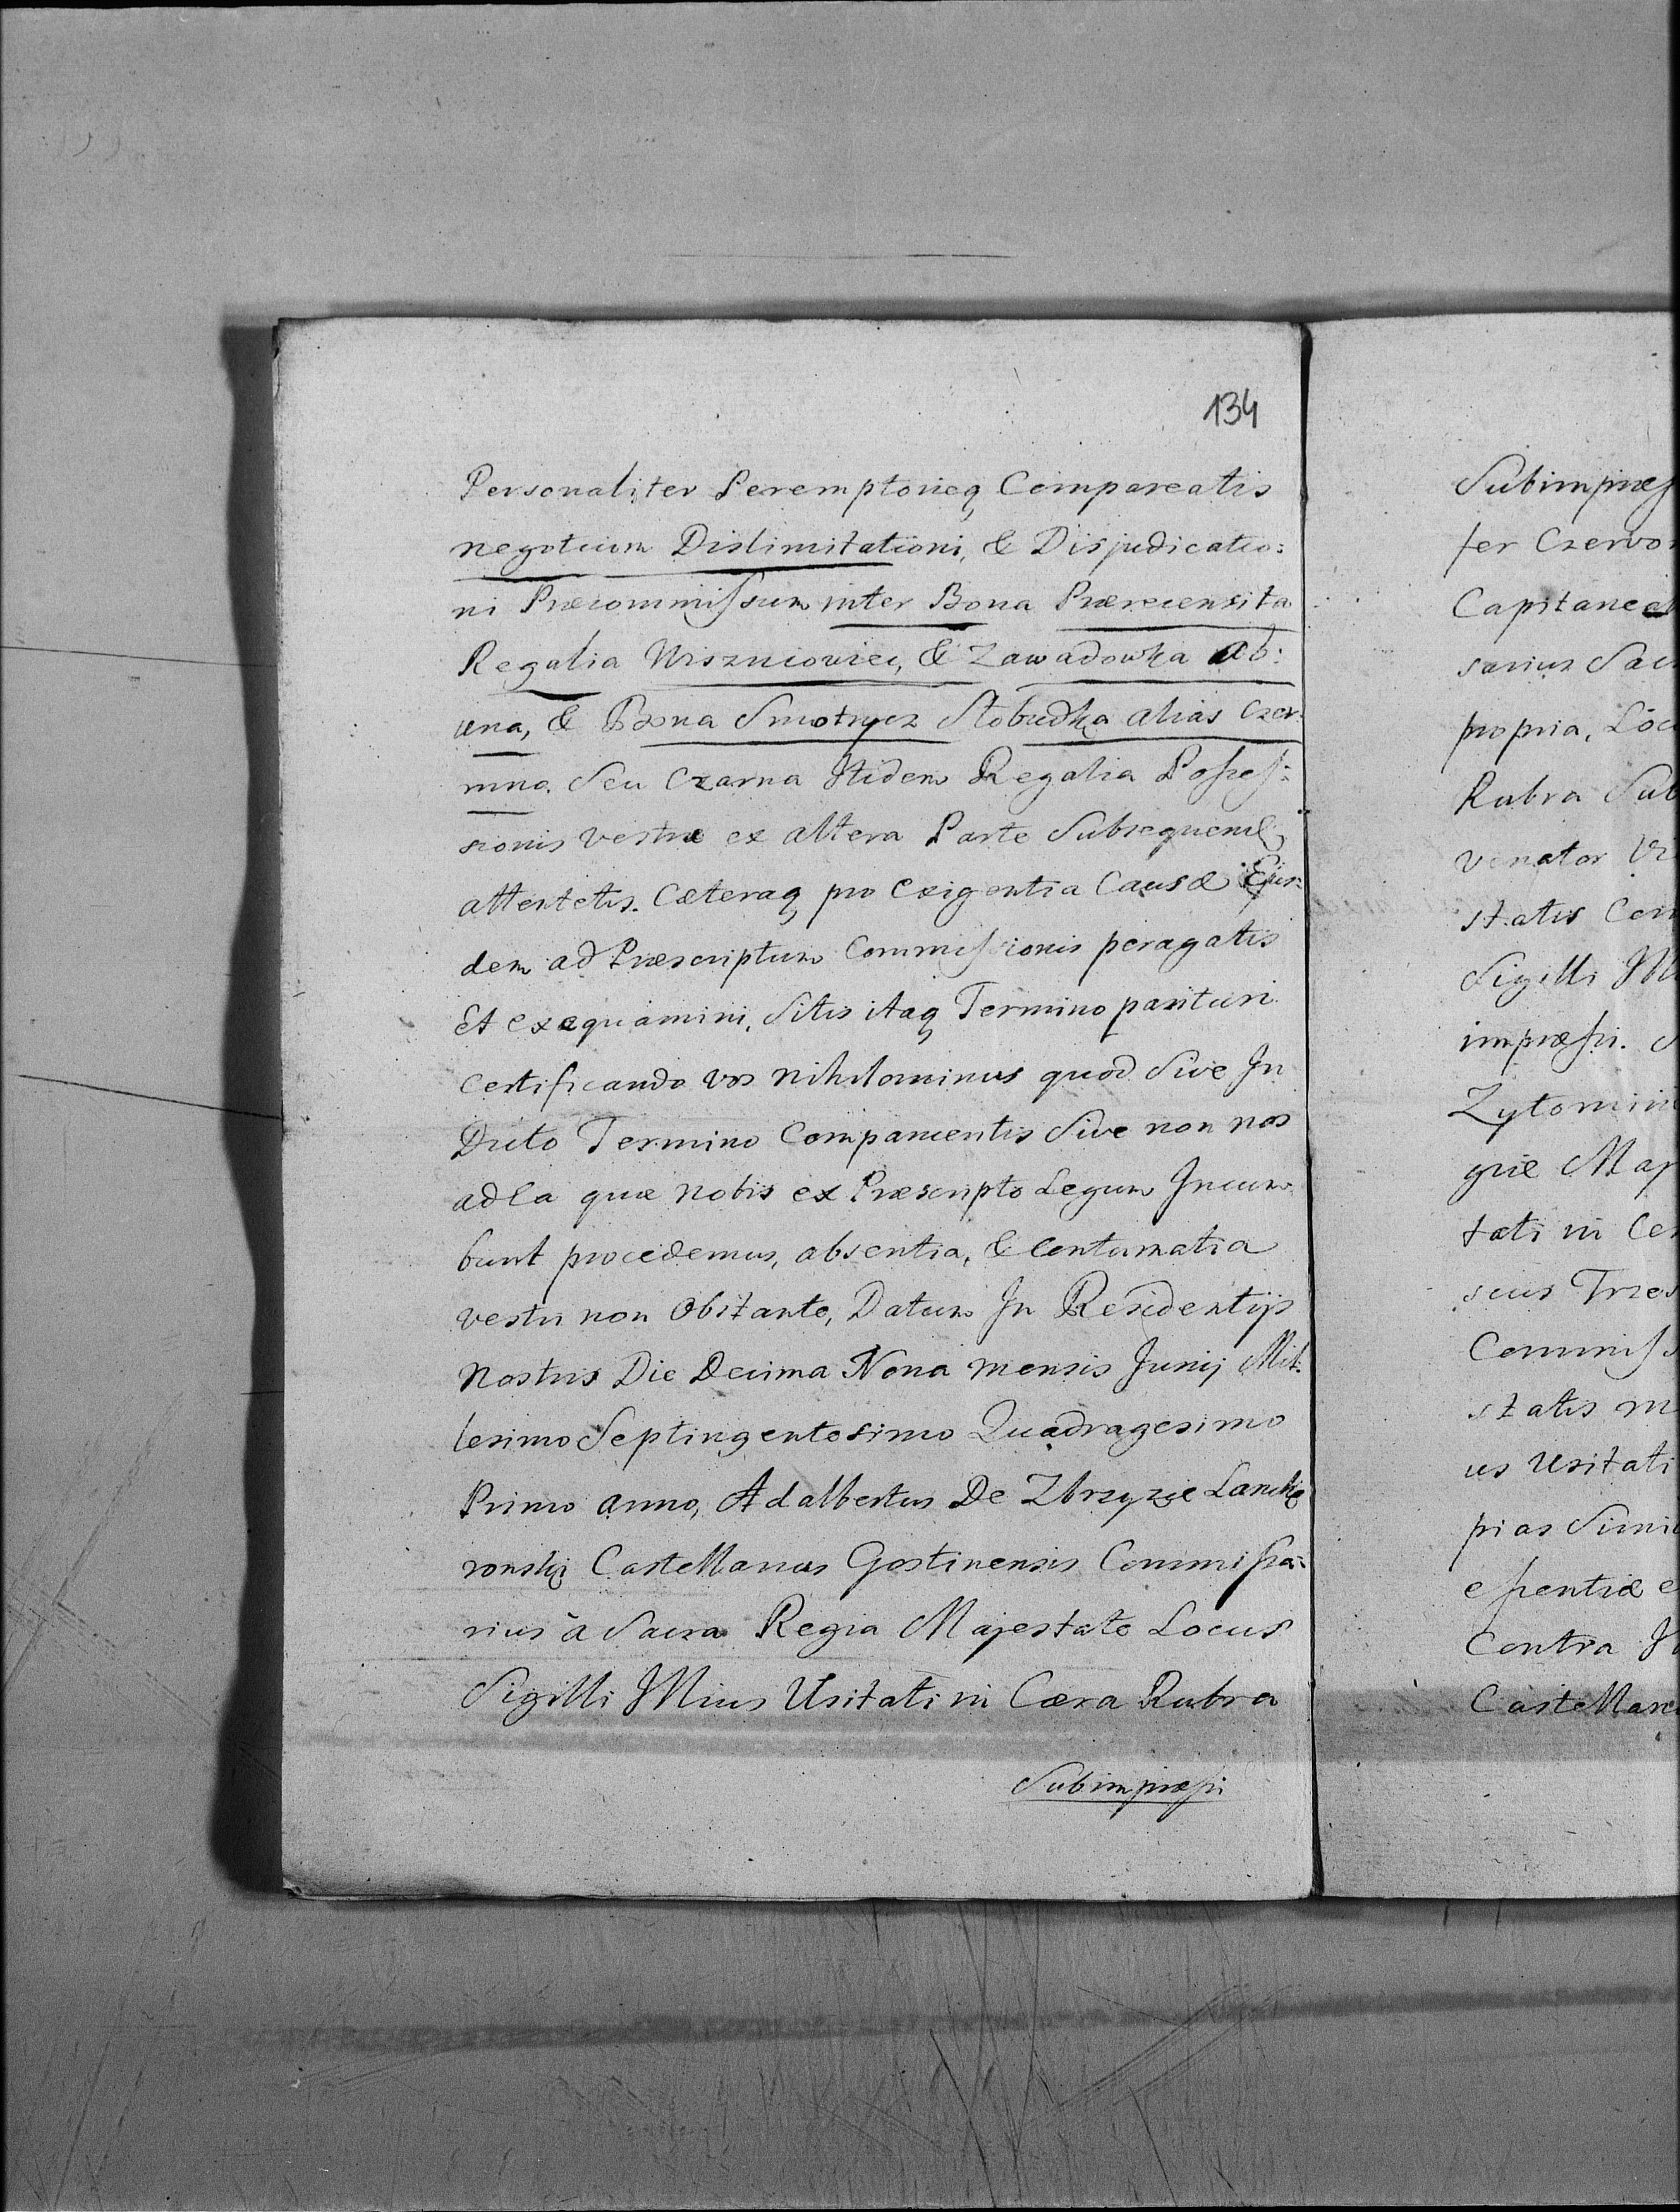 134
Personaliter Peremptorieq Compareatis
negotium Dislimitationi, & Disjudicatio:
ni Præcommissum inter Bona Præcensita
Regalia Wiszniowiec, & Zawadowka ab:
una, & Bona Smotrycz Słobudka alias Czer:
mna. Seu Czarna Itidem Regalia Posses:
sionis vestræ ex altera Parte Subsequen
attentetis. Cæteraq pro Exigentia Causæ Ejus:
dem ad Præscriptum Commissionis peragatis
Et exequamini, Sitis itaq Termino parituri
Certificando vos nihilominus quod Sive In
Dicto Termino Comparueritis Sive non nos
ad Ea quæ nobis ex Præscripto Legum Incum
bunt procedemus, absentia, & Contumatia
vestri non Obstante, Datum In Residentijs
Nostris Die Decima Nona mensis Junij Mil:
lesimo Septingentesimo Quadragesimo
Primo anno, Adalbertus De Zbrzyzie Lancko
ronski Castellanus Gostinensis Commissa:
rius à Sacra Regia Majestate Locus
Sigilli Illius Usitati in Cæra Rubra
Subimpræssi
Subimpræs
fer Czerwo
Capitanea
sarius Sac
propria, Loc
Rubra Sub
venator
statis Com
Sigilli Ill
impræssi.
Zytomiri
giæ Maj
tati in Ce
seus Trzes
Commiss
statis m
us Usitati
pias Simi
essentiæ e
Contra
Castellan